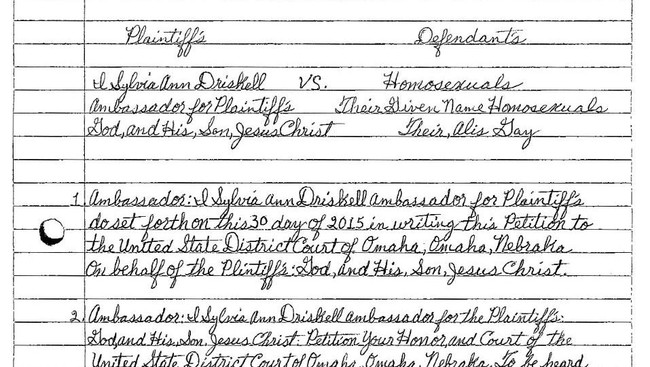 Plaintiff's Defendant's
I Sylvia Ann Driskell VS. Homosexuals
Ambassador for Plaintiff's Their Given Name Homosexuals
God, and His, Son, Jesus Christ Their, Alis Gay
1. Ambassador: I Sylvia Ann Driskell Ambassador for Plaintiff's
do set forth on this 30 day of 2015 in writing this Petition to
the United State District Court of Omaha, Omaha, Nebraka
On behalf of the Plintiff's: God, and His, Son, Jesus Christ.
2. Ambassador: I Sylvia Ann Driskell ambassador for the Plaintiff's:
God, and His, Son, Jesus Christ: Petition Your Honor, and Court of the
United State District Court of Omaha, Omaha, Nebraka, To be heard